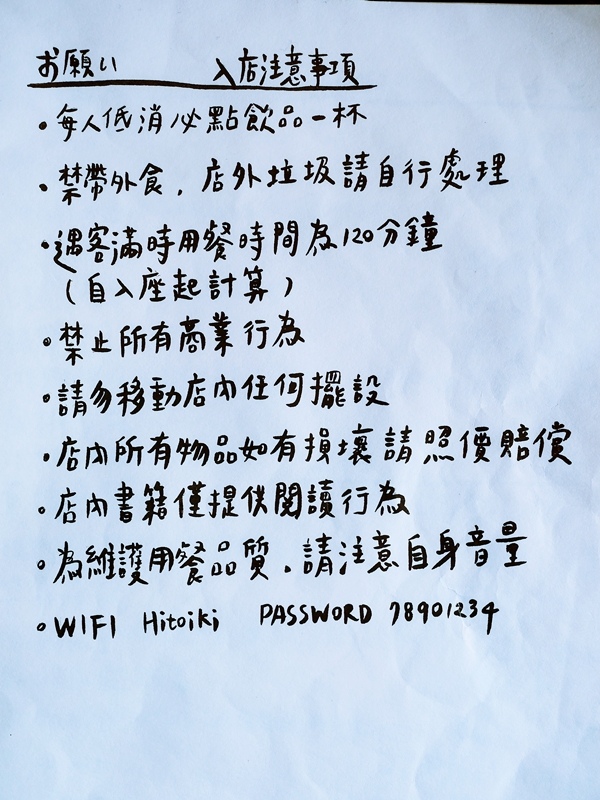 お願い 入店注意事項
•每人低消必點飲品一杯
•禁帶外食，店外垃圾請自行處理
•遇客滿時用餐時間為120分鐘
(自入座起計算)
•禁止所有商業行為
•請勿移動店內任何擺設
•店內所有物品如有損壞請照價賠償
•店內書籍僅提供閱讀行為
•為維護用餐品質，請注意自身音量
•WIFI Hitoiki PASSWORD 78901234